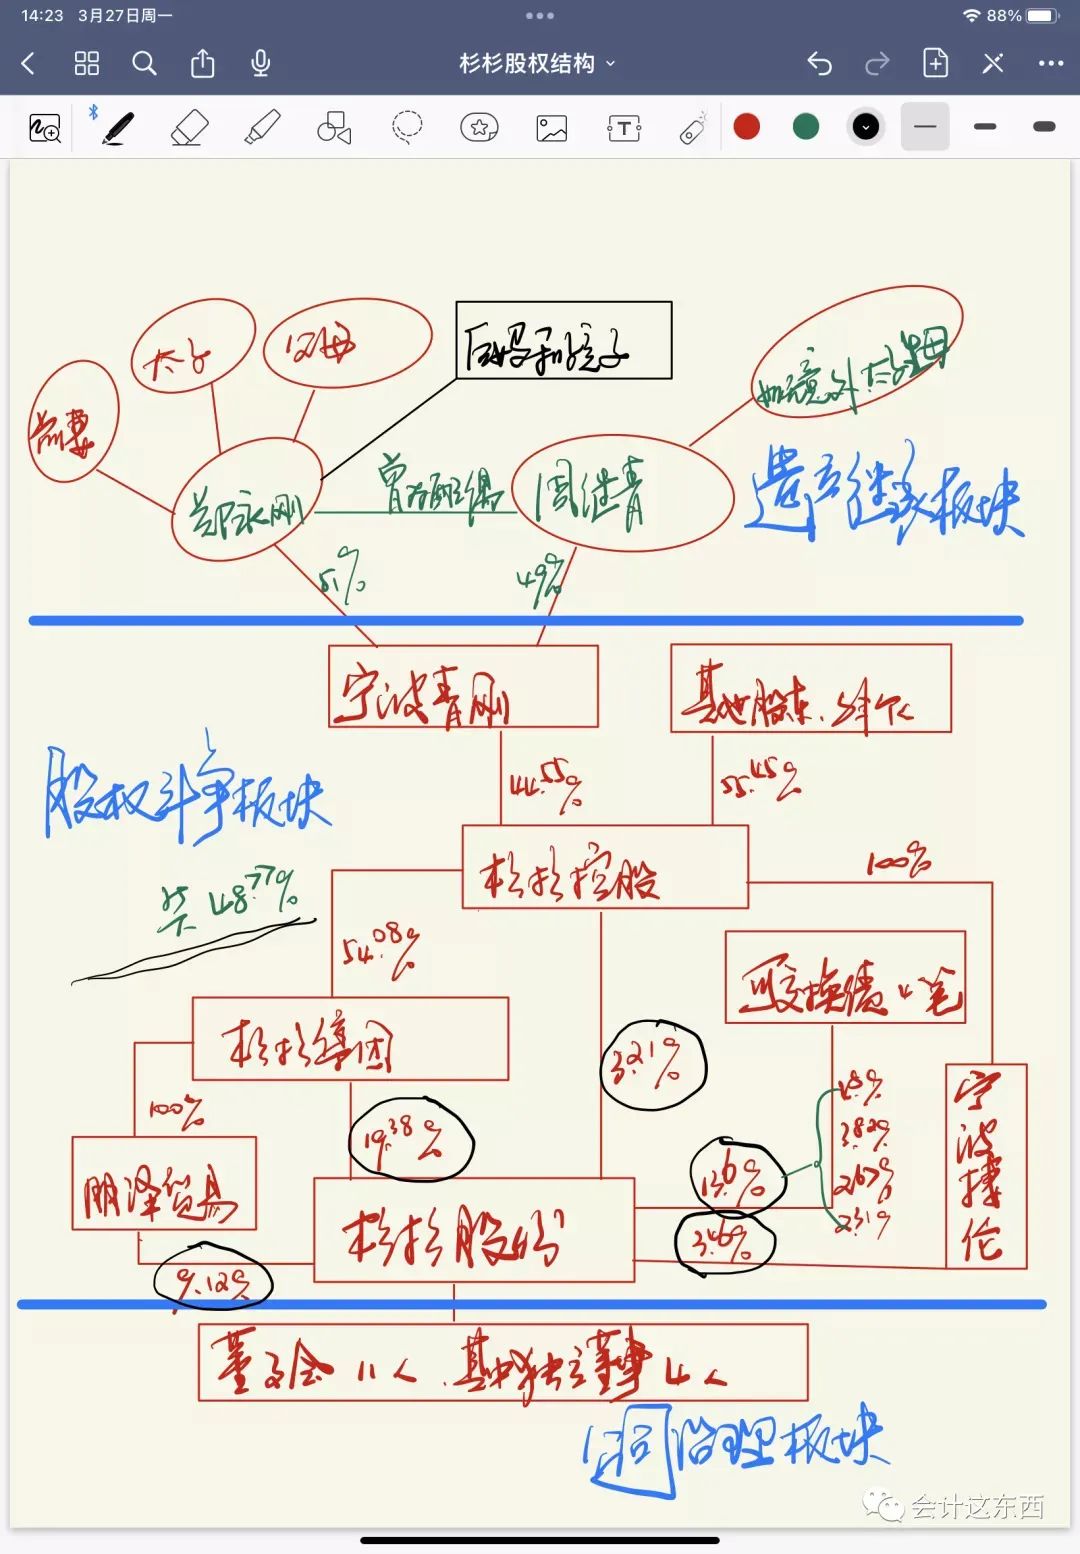 14:23 3月27日周一
88%
杉杉股权结构
太子
父母
后母和孩子
如意外太子生母
前妻
郑永刚
曾为配偶
周继青
遗产继承板块
51%
49%
宁波青刚
其他股东、多个
股权斗争板块
44.55%
55.45%
杉杉控股
100%
共48.77%
54.08%
可交换债4笔
杉杉集团
3.21%
100%
19.38%
1.8%
3.82%
2.67%
2.31%
宁波捷伦
朋泽贸易
13.6%
杉杉股份
3.46%
9.12%
董事会11人、其中独立董事4人
公司治理板块
会计这东西